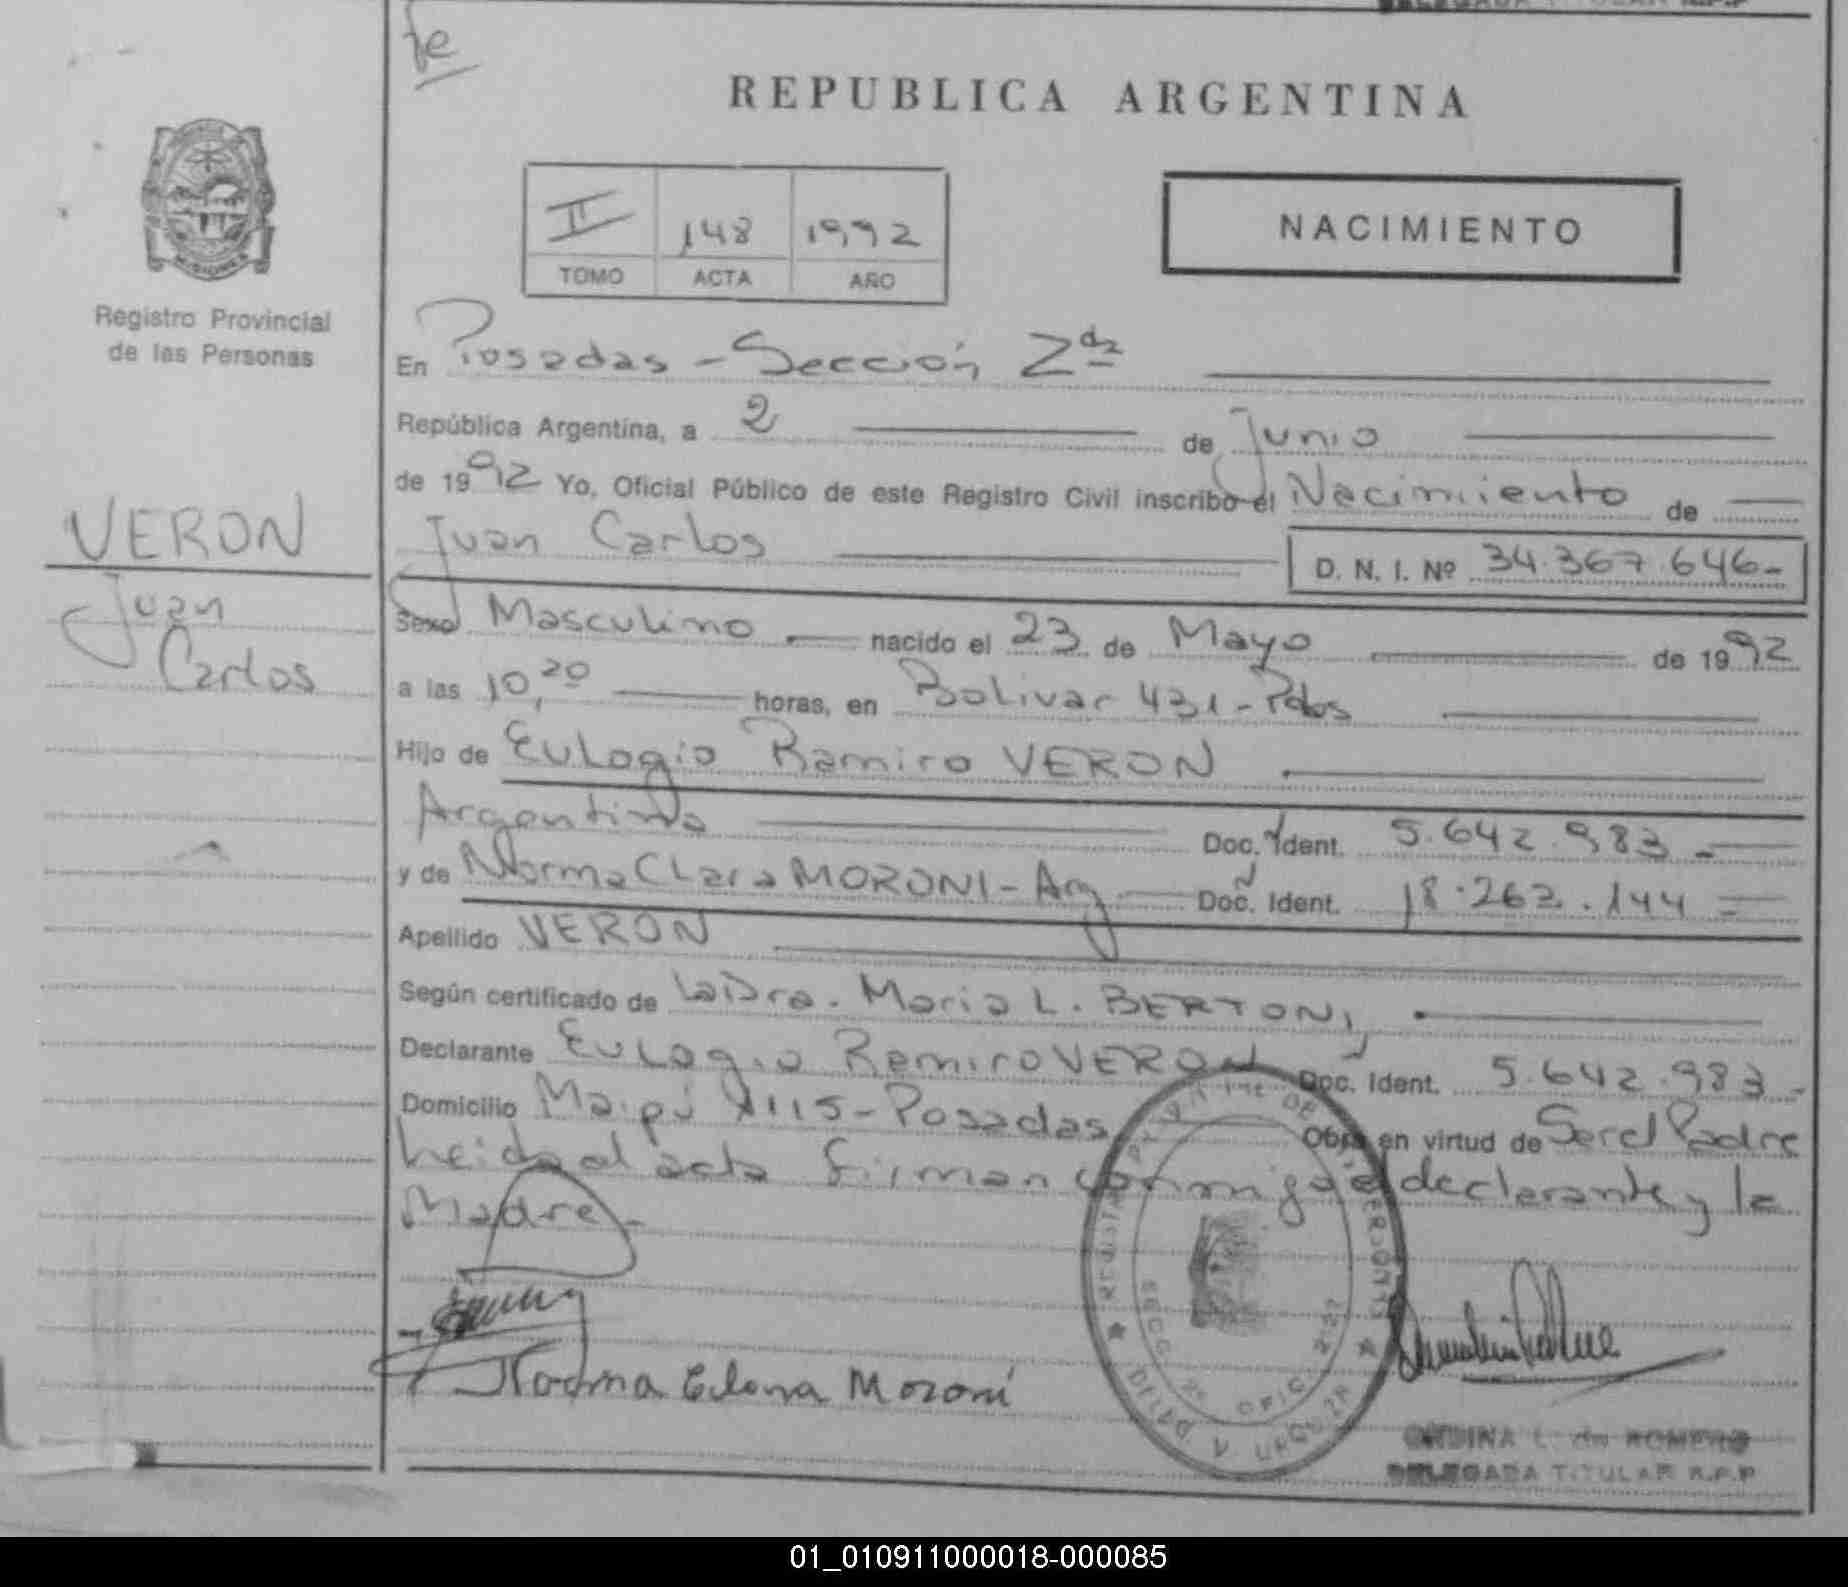 fe
REPUBLICA ARGENTINA
II 148 1992
TOMO ACTA AÑO
NACIMIENTO
MISIONES
Registro Provincial
de las Personas
VERON
Juan
Carlos
En Posadas - Sección 2da
República Argentina, a 2 de Junio
de 1992 Yo, Oficial Público de este Registro Civil inscribo el Nacimiento de
Juan Carlos D. N. I. Nº 34.367.646-
Sexo Masculino nacido el 23 de Mayo de 1992
a las 10,20 horas, en Bolivar 431 - Pdas
Hijo de Eulogio Ramiro VERON
Argentina Doc. Ident. 5.642.983-
y de Norma Clara MORONI - Arg Doc. Ident. 18.262.144
Apellido VERON
Según certificado de la Dra. Maria L. BERTONI
Declarante Eulogio Ramiro VERON Doc. Ident. 5.642.983-
Domicilio Maipú 1115 - Posadas Obra en virtud de Ser el Padre
Leida el acta firman conmigo el declarante y la
Madre-
Norma Elena Moroni
ONDINA L. de ROMERO
DELEGADA TITULAR R.P.P
01_010911000018-000085